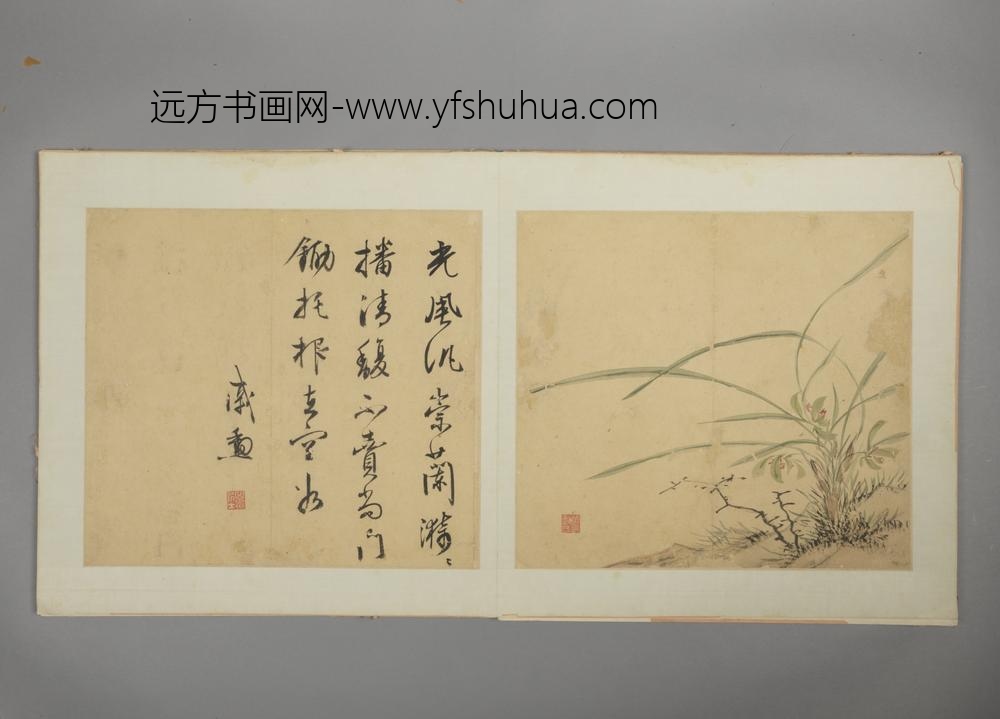 远方书画网-www.yfshuhua.com
光風汎崇蘭漪〻
播清馥不賣當門
鋤托根在空谷
咸熏